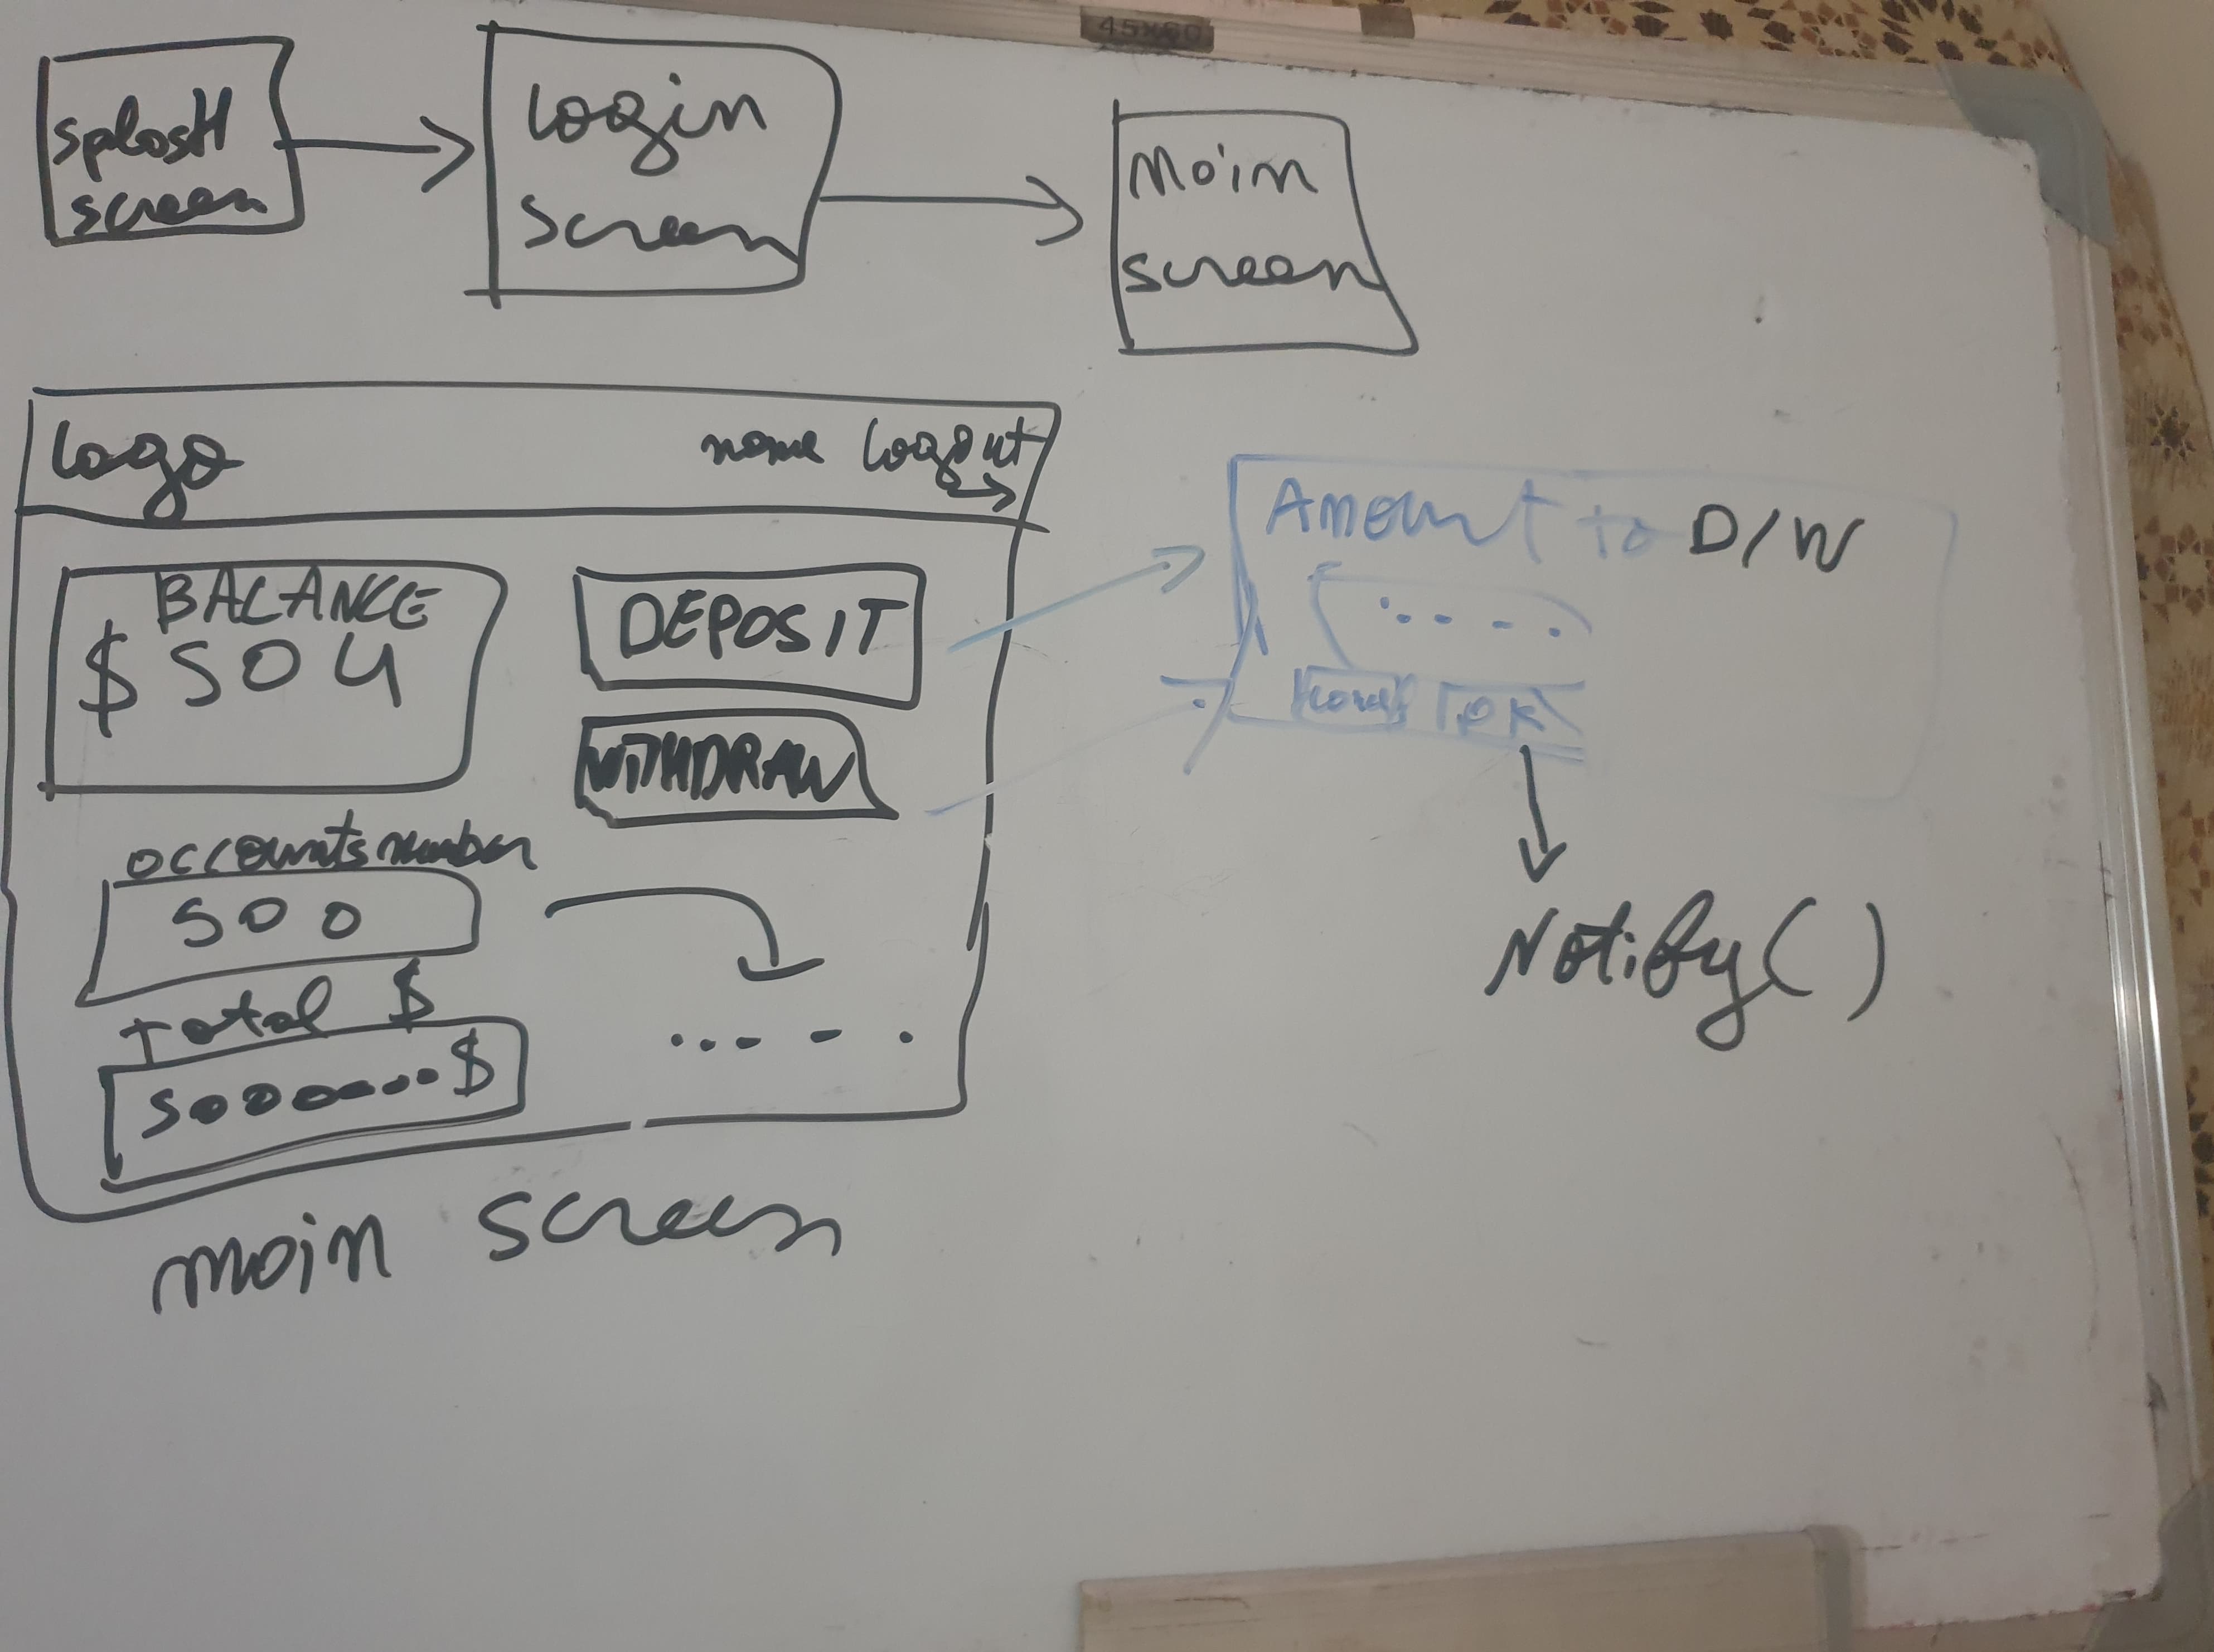 45x60
splasH
screen
Login
screen
Main
screen
Logo
name Logout
BALANCE
$ 504
DEPOSIT
WITHDRAW
accounts number
500
Total $
5000000 $
main screen
Amount to D/W
OK
Notify()